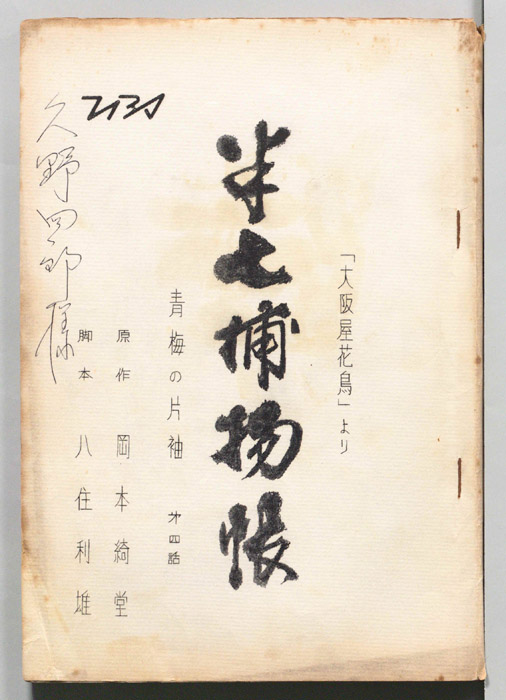 「大阪屋花鳥」より
半七捕物帳
青梅の片袖 第四話
原作 岡本綺堂
脚本 八住利雄
久野四郎様